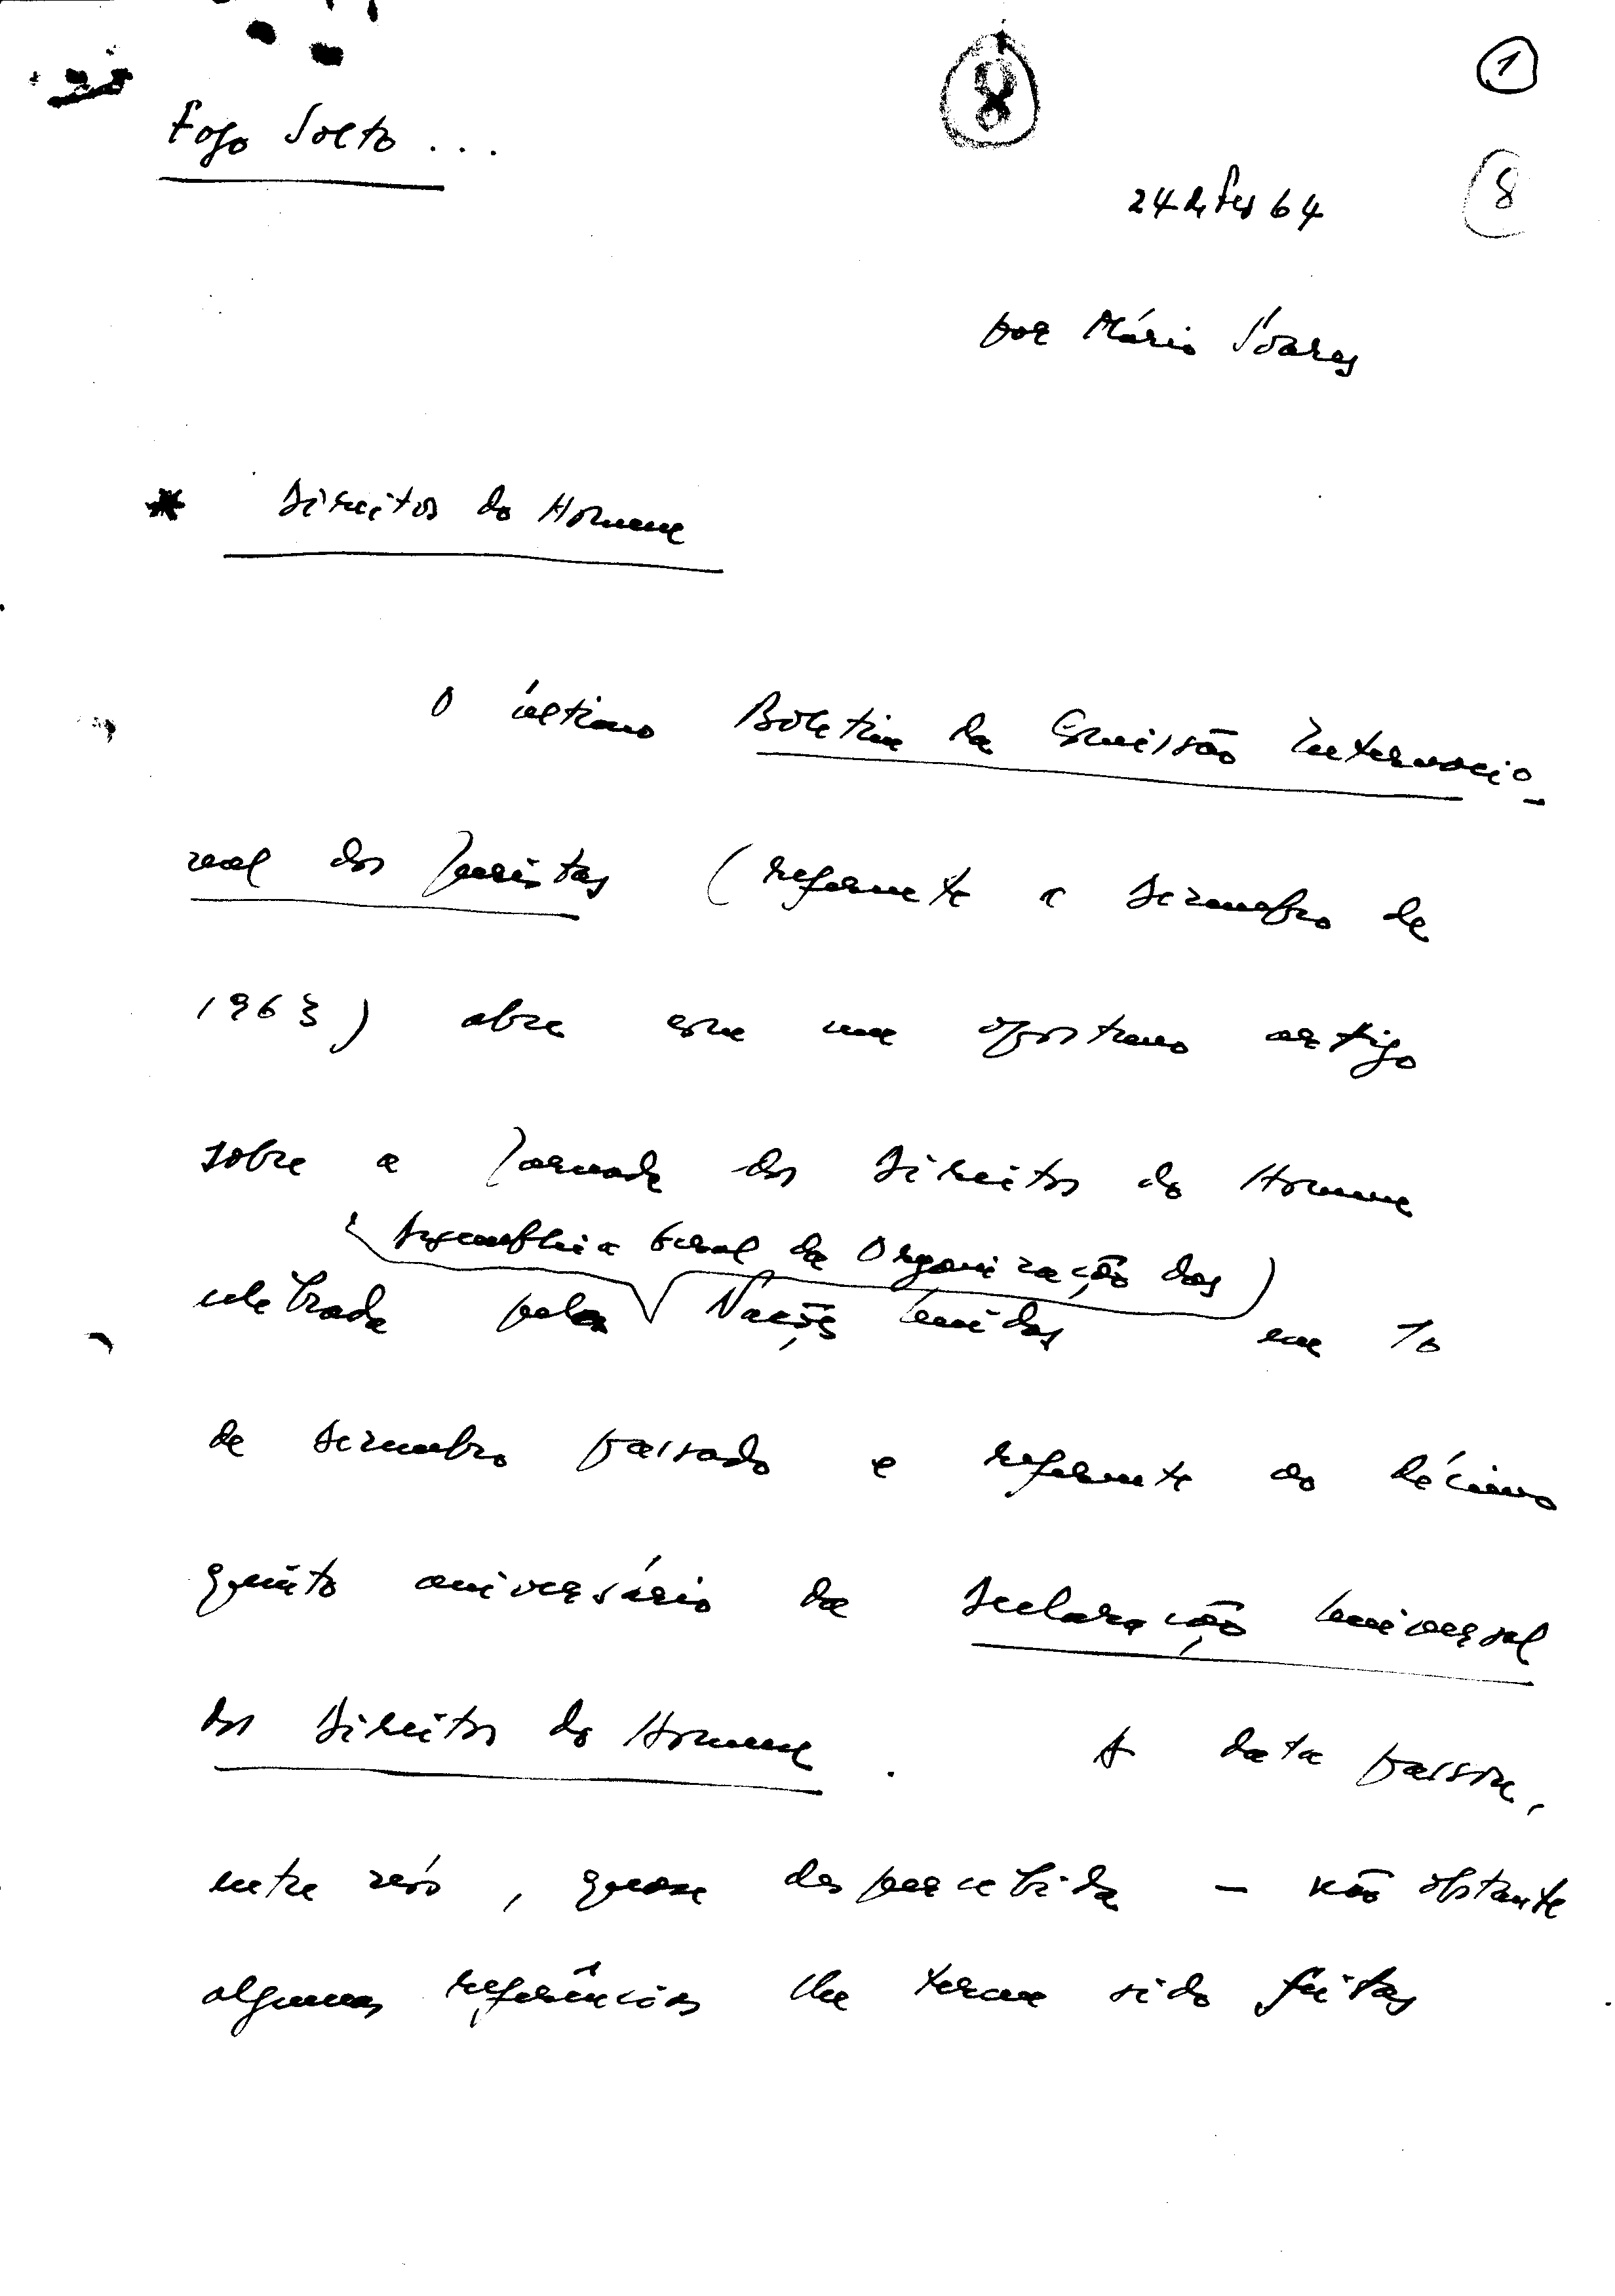 8
1
Fogo Solto...
8
24 de Fev 64
por Mário Soares
* Direitos do Homem
O último Boletim da Comissão Internacio-
nal dos Juristas (referente a Dezembro de
1963) abre com um oportuno artigo
sobre a Jornada dos Direitos do Homem
Assembleia Geral da Organização das
celebrada pela Nações Unidas em 10
de Dezembro passado e referente ao décimo
quinto aniversário da Declaração Universal
dos Direitos do Homem. A data passou,
entre nós, quase despercebida - não obstante
algumas referências lhe terem sido feitas